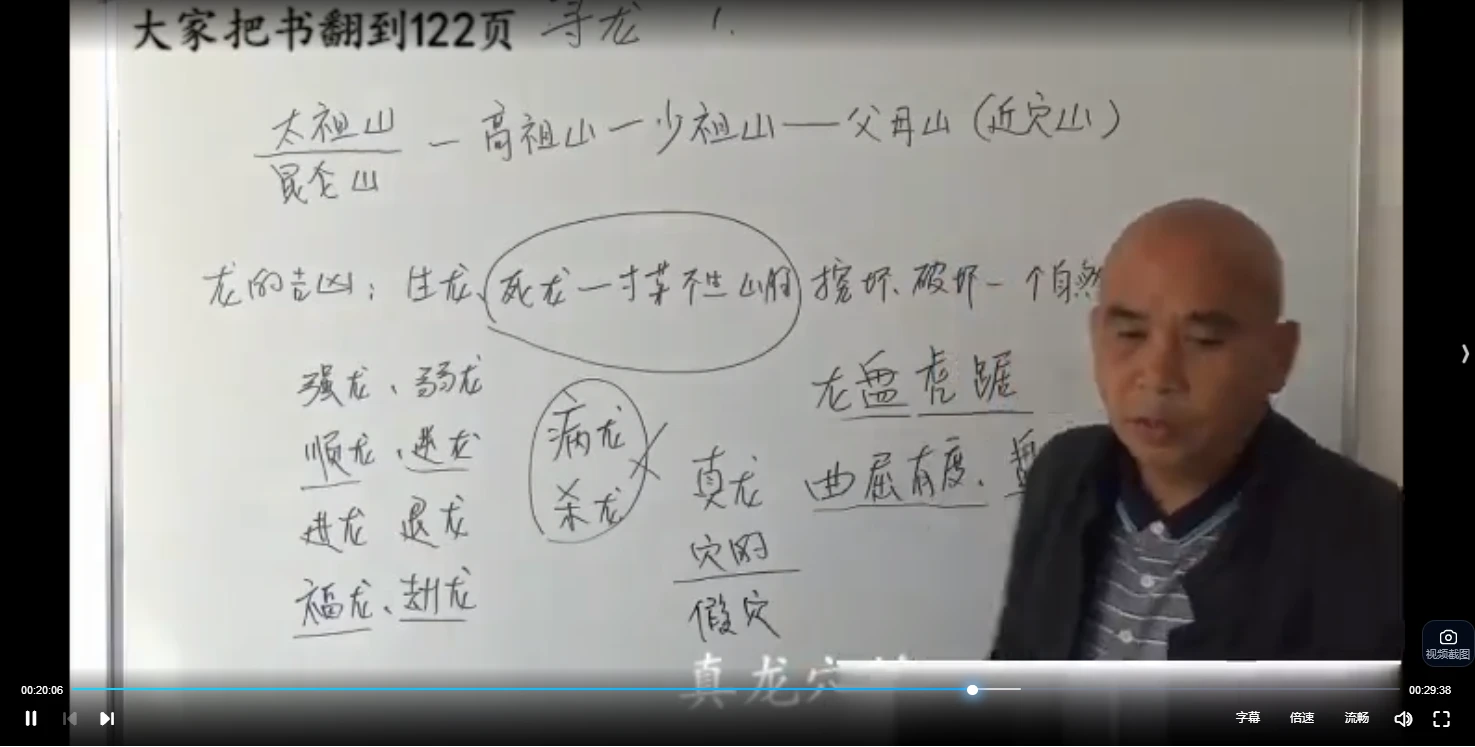 大家把书翻到122页
寻龙
太祖山 — 高祖山 — 少祖山 — 父母山（近穴山）
昆仑山
龙的吉凶：生龙、死龙一寸草不生 挖坏、破坏一个自然
强龙、弱龙
龙盘虎踞
病龙
顺龙、逆龙
真龙
曲屈有度、
杀龙
进龙 退龙
穴的
福龙、劫龙
假穴
真龙穴
视频截图
00:20:06
00:29:38
字幕
倍速
流畅